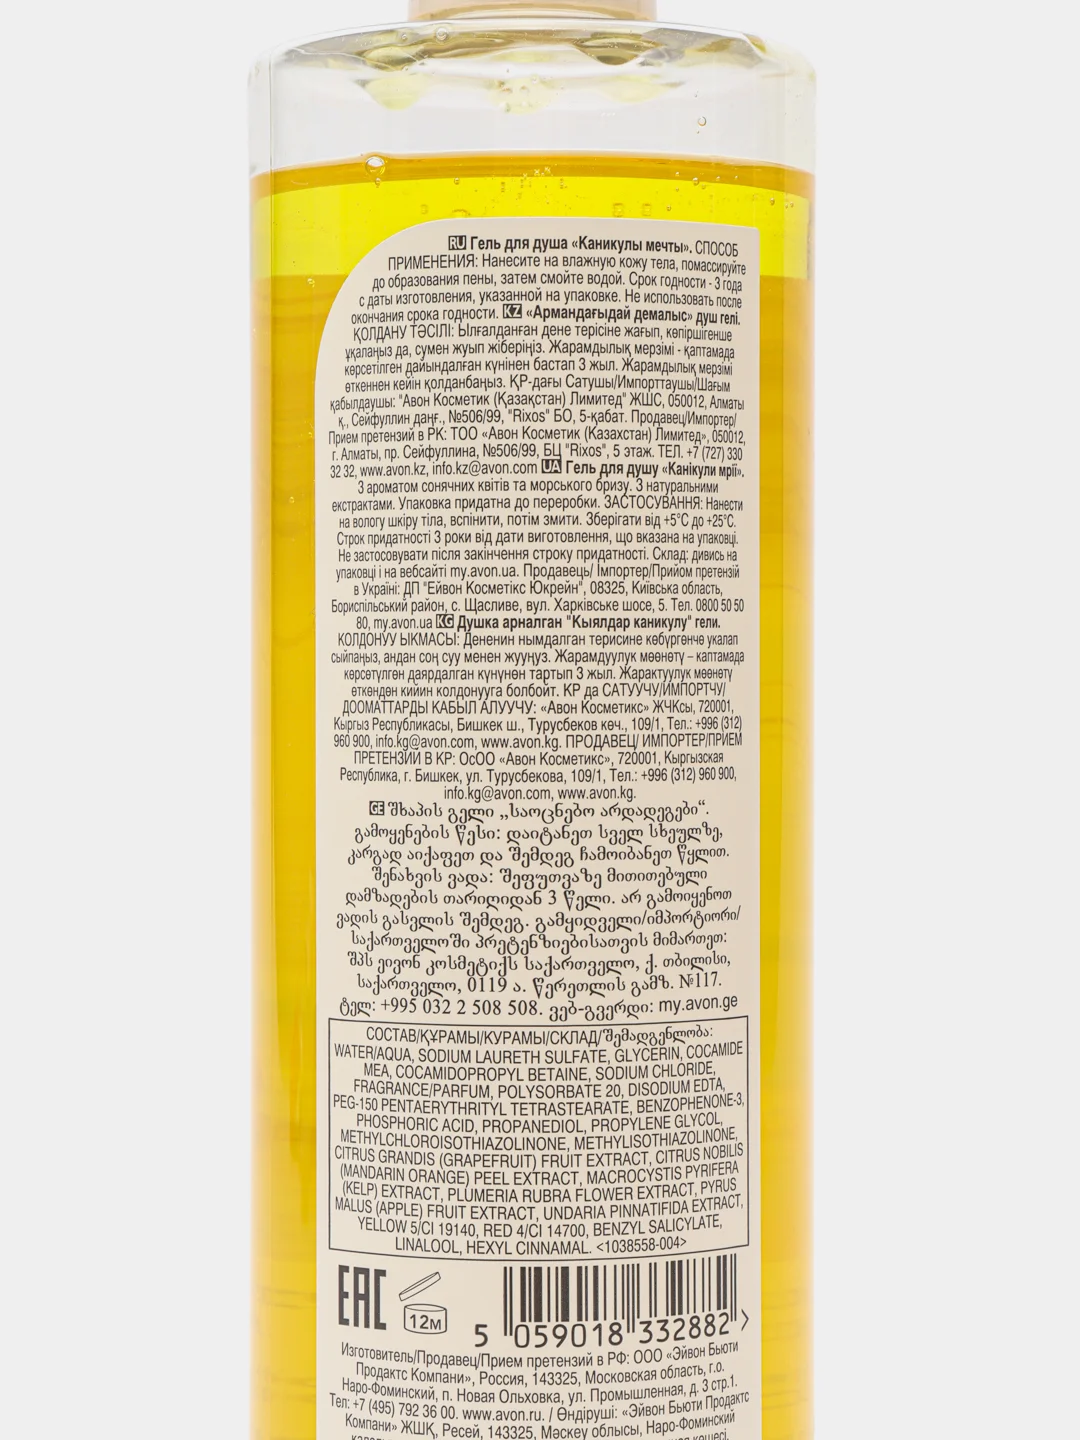 RU Гель для душа «Каникулы мечты». СПОСОБ
ПРИМЕНЕНИЯ: Нанесите на влажную кожу тела, помассируйте
до образования пены, затем смойте водой. Срок годности - 3 года
с даты изготовления, указанной на упаковке. Не использовать после
окончания срока годности. KZ «Армандағыдай демалыс» душ гелі.
ҚОЛДАНУ ТӘСІЛІ: Ылғалданған дене терісіне жағып, көпіршігенше
ұқалаңыз да, сумен жуып жіберіңіз. Жарамдылық мерзімі - қаптамада
көрсетілген дайындалған күнінен бастап 3 жыл. Жарамдылық мерзімі
өткеннен кейін қолданбаңыз. ҚР-дағы Сатушы/Импорттаушы/Шағым
қабылдаушы: "Авон Косметик (Қазақстан) Лимитед" ЖШС, 050012, Алматы
қ., Сейфуллин даңғ., №506/99, "Rixos" БО, 5-қабат. Продавец/Импортер/
Прием претензий в РК: ТОО «Авон Косметик (Казахстан) Лимитед», 050012,
г. Алматы, пр. Сейфуллина, №506/99, БЦ "Rixos", 5 этаж. ТЕЛ. +7 (727) 330
32 32, www.avon.kz, info.kz@avon.com UA Гель для душу «Канікули мрії».
З ароматом сонячних квітів та морського бризу. З натуральними
екстрактами. Упаковка придатна до переробки. ЗАСТОСУВАННЯ: Нанести
на вологу шкіру тіла, вспінити, потім змити. Зберігати від +5°С до +25°С.
Строк придатності 3 роки від дати виготовлення, що вказана на упаковці.
Не застосовувати після закінчення строку придатності. Склад: дивись на
упаковці і на вебсайті my.avon.ua. Продавець/ Імпортер/Прийом претензій
в Україні: ДП "Ейвон Косметікс Юкрейн", 08325, Київська область,
Бориспільський район, с. Щасливе, вул. Харківське шосе, 5. Тел. 0800 50 50
80, my.avon.ua KG Душка арналган "Кыялдар каникулу" гели.
КОЛДОНУУ ЫКМАСЫ: Дененин нымдалган терисине көбүргөнчө укалап
сыйпаңыз, андан соң суу менен жууңуз. Жарамдуулук мөөнөтү – каптамада
көрсөтүлгөн даярдалган күнүнөн тартып 3 жыл. Жарактуулук мөөнөтү
өткөндөн кийин колдонууга болбойт. КР да САТУУЧУ/ИМПОРТЧУ/
ДООМАТТАРДЫ КАБЫЛ АЛУУЧУ: «Авон Косметикс» ЖЧКсы, 720001,
Кыргыз Республикасы, Бишкек ш., Турусбеков көч., 109/1, Тел.: +996 (312)
960 900, info.kg@avon.com, www.avon.kg. ПРОДАВЕЦ/ ИМПОРТЕР/ПРИЕМ
ПРЕТЕНЗИЙ В КР: ОсОО «Авон Косметикс», 720001, Кыргызская
Республика, г. Бишкек, ул. Турусбекова, 109/1, Тел.: +996 (312) 960 900,
info.kg@avon.com, www.avon.kg.
GE შხაპის გელი „საოცნებო არდადეგები“.
გამოყენების წესი: დაიტანეთ სველ სხეულზე,
კარგად აიქაფეთ და შემდეგ ჩამოიბანეთ წყლით.
შენახვის ვადა: შეფუთვაზე მითითებული
დამზადების თარიღიდან 3 წელი. არ გამოიყენოთ
ვადის გასვლის შემდეგ. გამყიდველი/იმპორტიორი/
საქართველოში პრეტენზიებისათვის მიმართეთ:
შპს ეივონ კოსმეტიქს საქართველო, ქ. თბილისი,
საქართველო, 0119 ა. წერეთლის გამზ. №117.
ტელ: +995 032 2 508 508. ვებ-გვერდი: my.avon.ge
СОСТАВ/ҚҰРАМЫ/КУРАМЫ/СКЛАД/შემადგენლობა:
WATER/AQUA, SODIUM LAURETH SULFATE, GLYCERIN, COCAMIDE
MEA, COCAMIDOPROPYL BETAINE, SODIUM CHLORIDE,
FRAGRANCE/PARFUM, POLYSORBATE 20, DISODIUM EDTA,
PEG-150 PENTAERYTHRITYL TETRASTEARATE, BENZOPHENONE-3,
PHOSPHORIC ACID, PROPANEDIOL, PROPYLENE GLYCOL,
METHYLCHLOROISOTHIAZOLINONE, METHYLISOTHIAZOLINONE,
CITRUS GRANDIS (GRAPEFRUIT) FRUIT EXTRACT, CITRUS NOBILIS
(MANDARIN ORANGE) PEEL EXTRACT, MACROCYSTIS PYRIFERA
(KELP) EXTRACT, PLUMERIA RUBRA FLOWER EXTRACT, PYRUS
MALUS (APPLE) FRUIT EXTRACT, UNDARIA PINNATIFIDA EXTRACT,
YELLOW 5/CI 19140, RED 4/CI 14700, BENZYL SALICYLATE,
LINALOOL, HEXYL CINNAMAL. <1038558-004>
EAC
12M
5 059018 332882 >
Изготовитель/Продавец/Прием претензий в РФ: ООО «Эйвон Бьюти
Продактс Компани», Россия, 143325, Московская область, г.о.
Наро-Фоминский, п. Новая Ольховка, ул. Промышленная, д. 3 стр.1.
Тел: +7 (495) 792 36 00. www.avon.ru. / Өндіруші: «Эйвон Бьюти Продактс
Компани» ЖШҚ, Ресей, 143325, Мәскеу облысы, Наро-Фоминский